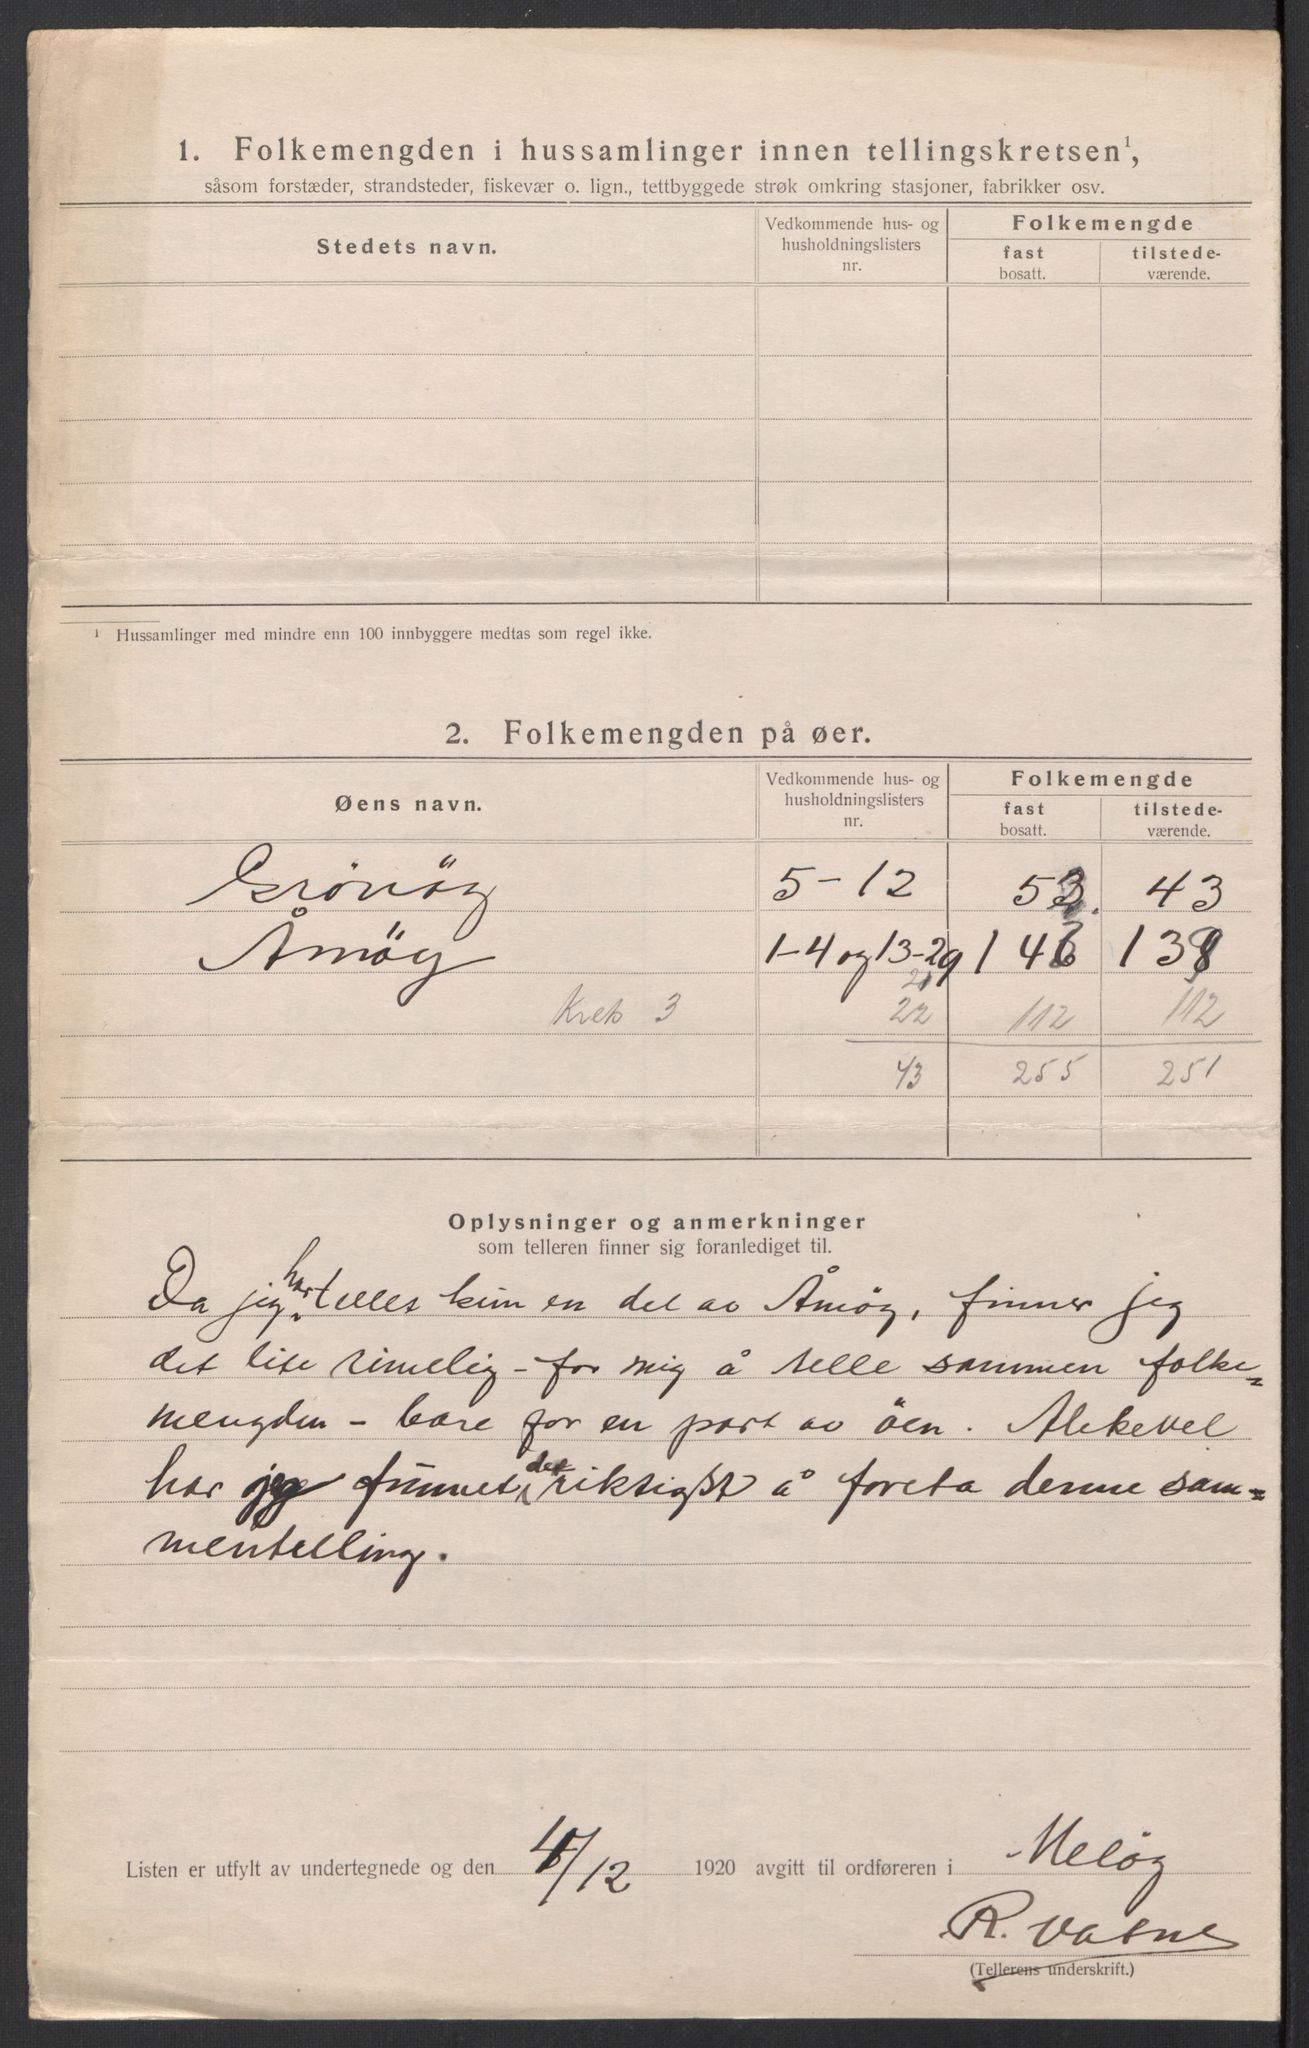 1. Folkemengden i hussamlinger innen tellingskretsen¹,
såsom forstæder, strandsteder, fiskevær o. lign., tettbyggede strøk omkring stasjoner, fabrikker osv.
Stedets navn.
Vedkommende hus- og
husholdningslisters
nr.
Folkemengde
fast
bosatt.
tilstede-
værende.
¹ Hussamlinger med mindre enn 100 innbyggere medtas som regel ikke.
2. Folkemengden på øer.
Øens navn.
Vedkommende hus- og
husholdningslisters
nr.
Folkemengde
fast
bosatt.
tilstede-
værende.
Grönöy 5-12 53. 43
Åmöy 1-4 og 13-29 143 139
21
Krets 3 22 112 112
43 255 251
Oplysninger og anmerkninger
som telleren finner sig foranlediget til.
Da jeg har telles kun en del av Åmöy, finner jeg
det lite rimelig - for mig å telle sammen folke=
mengden - bare for en part av öen. Alikevel
har jeg funnet det riktigst å foreta denne sam=
mentelling.
Listen er utfylt av undertegnede og den /12 1920 avgitt til ordføreren i Melöy
R. Vatne
(Tellerens underskrift.)